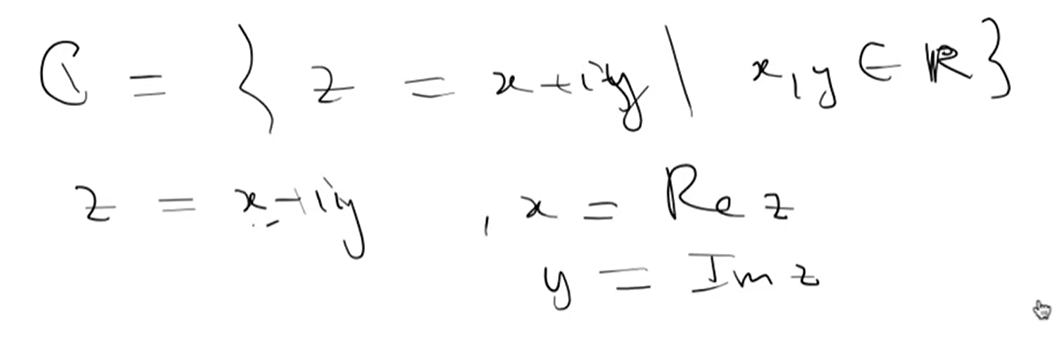 ℂ = { z = x+iy | x, y ∈ ℝ }
z = x+iy , x = Re z
y = Im z